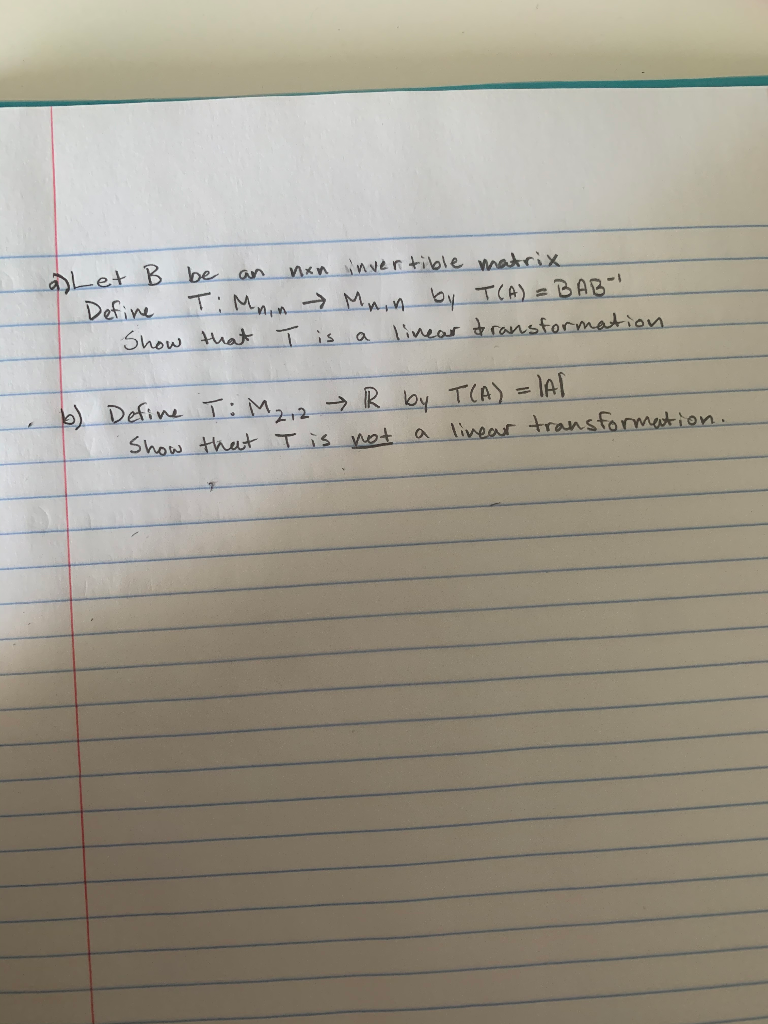 a) Let B be an nxn invertible matrix
Define T: Mn,n → Mn,n by T(A) = BAB⁻¹
Show that T is a linear transformation
b) Define T: M2,2 → ℝ by T(A) = |A|
Show that T is not a linear transformation.